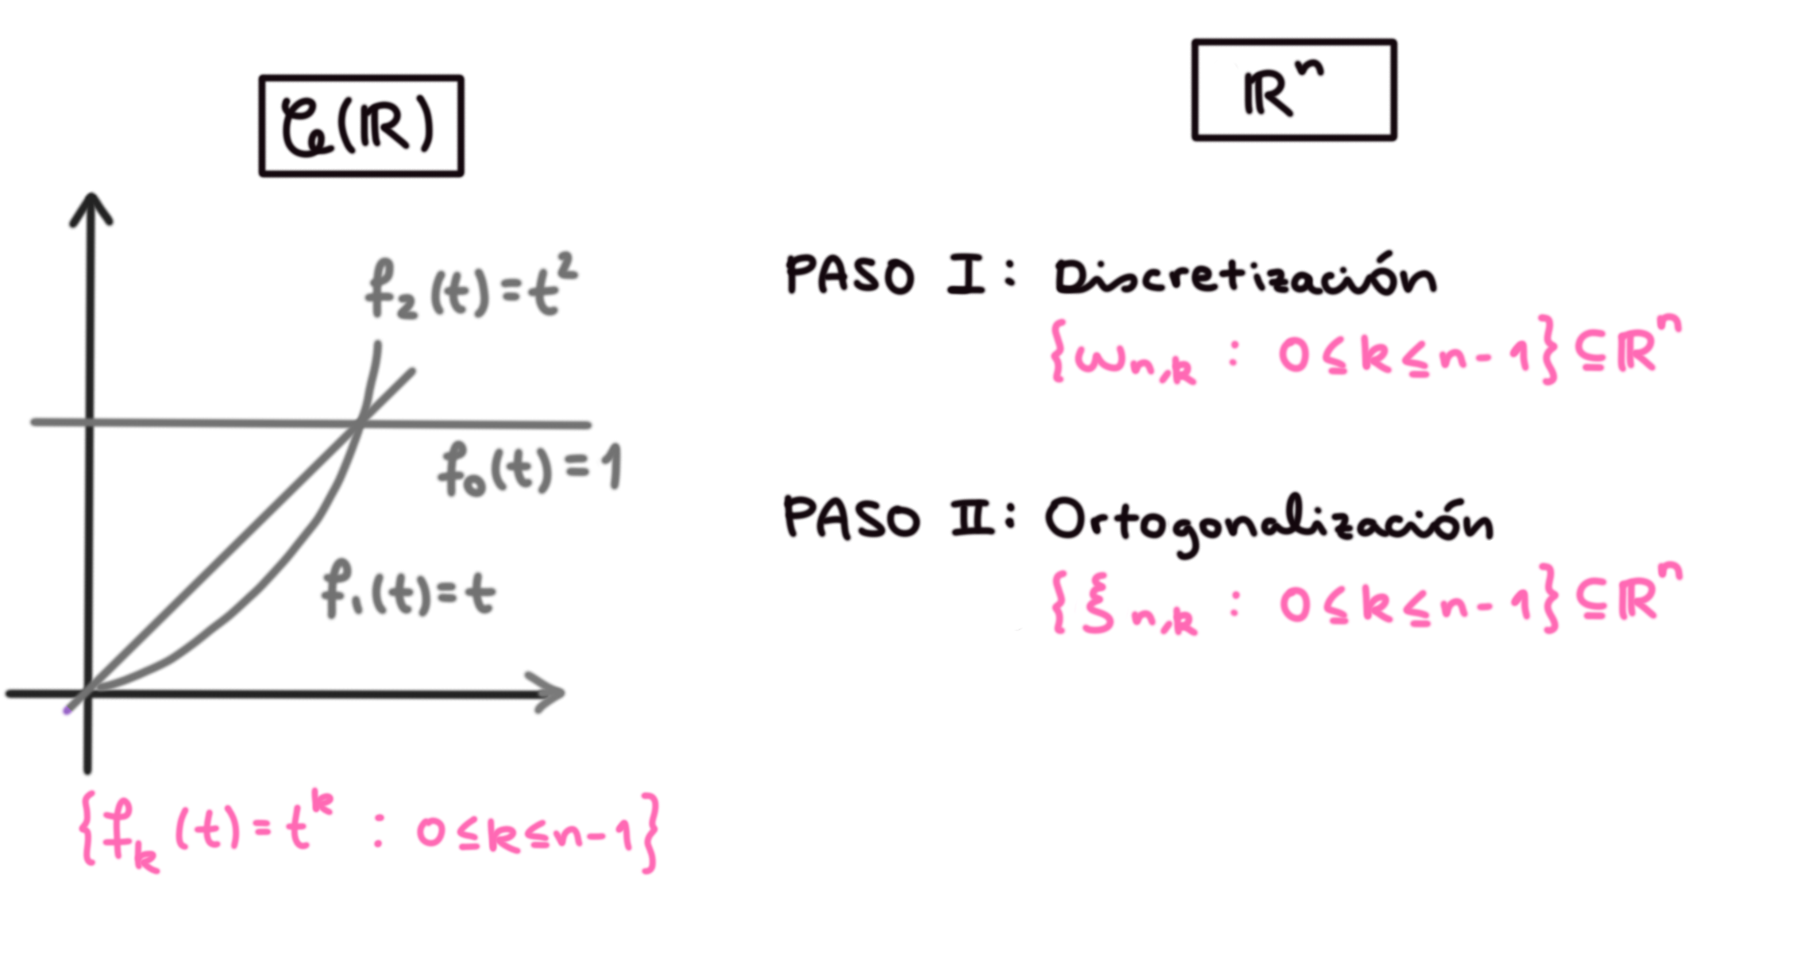 𝒞(ℝ)
f₂(t)=t²
f₀(t)=1
f₁(t)=t
{f_k(t)=t^k : 0≤k≤n-1}
ℝⁿ
PASO I: Discretización
{ω_{n,k} : 0≤k≤n-1}⊆ℝⁿ
PASO II: Ortogonalización
{ξ_{n,k} : 0≤k≤n-1}⊆ℝⁿ